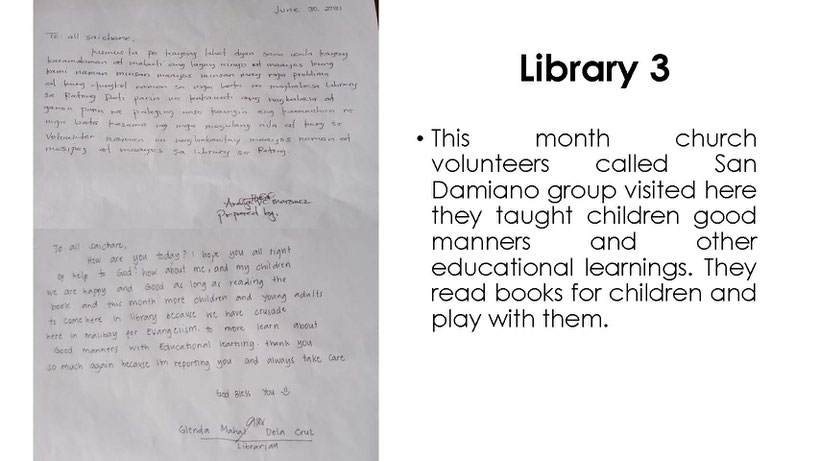 June 30, 2021
To: all saichare,
kumusta po kayong lahat dyan sana wala kayong
karamdaman at mabuti ang lagay ninyo at maayos kung
kami naman minsan maayos minsan may mga problima
at kung tungkol naman sa mga bata na nagbabasa library
sa Ratong Dati parin na patuloy ang nagbabasa at
ganon parin na palaging
mga bata kasama ng mga magulang nila at kung sa
Volountier naman na nagbabantay maayos naman at
masipag at maayos sa library sa Ratong.
Prepared by.
To all saichare,
How are you today? I hope you all right
of help to God! how about me, and my children
we are happy and Good as long as reading the
book and this month more children and young adults
to come here in library because we have crusade
here in malibay for Evangelism. to more learn about
Good manners with Educational learning. thank you
so much again because I'm reporting you and always take care
God Bless You
Glenda Mahay Dela Cruz
Librarian
Library 3
• This month church
volunteers called San
Damiano group visited here
they taught children good
manners and other
educational learnings. They
read books for children and
play with them.